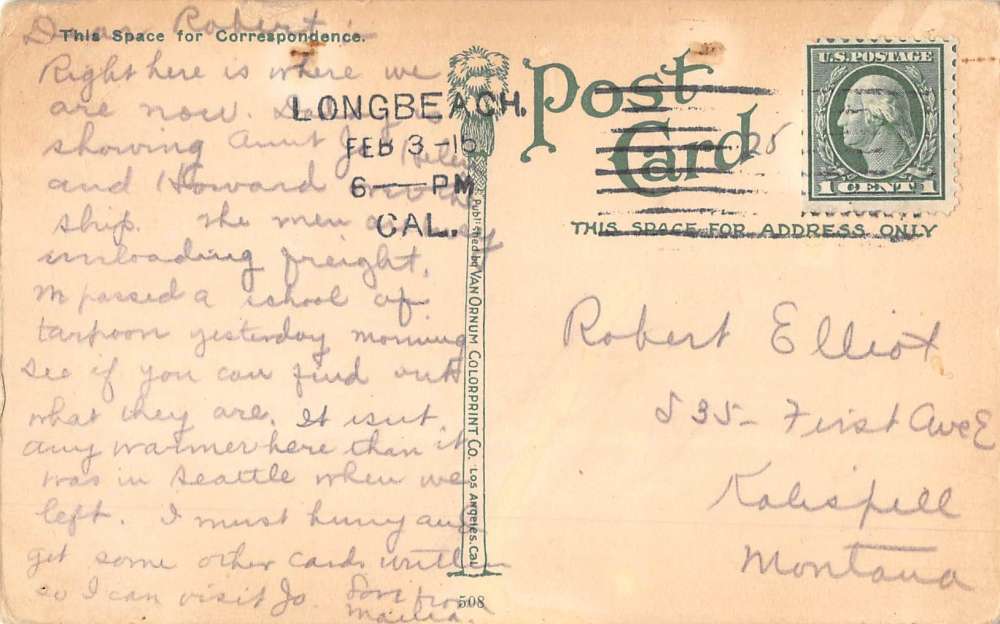 Dear Robert :-
This Space for Correspondence.
Right here is where we
are now.
showing Aunt Jo, Helen
and Howard over the
ship. The men are busy
unloading freight.
We passed a school of
tarpoon yesterday morning
See if you can find out
what they are. It isn't
any warmer here than it
was in Seattle when we
left. I must hurry and
get some other cards written
so I can visit Jo. Love from
LONGBEACH.
FEB 3 -16
6 — PM
CAL.
Published by VAN ORNUM COLORPRINT CO. LOS ANGELES, Cal
508
Post
Card
25
U.S. POSTAGE
1 CENT 1
THIS SPACE FOR ADDRESS ONLY
Robert Elliot
535 - First Ave E
Kalispell
Montana